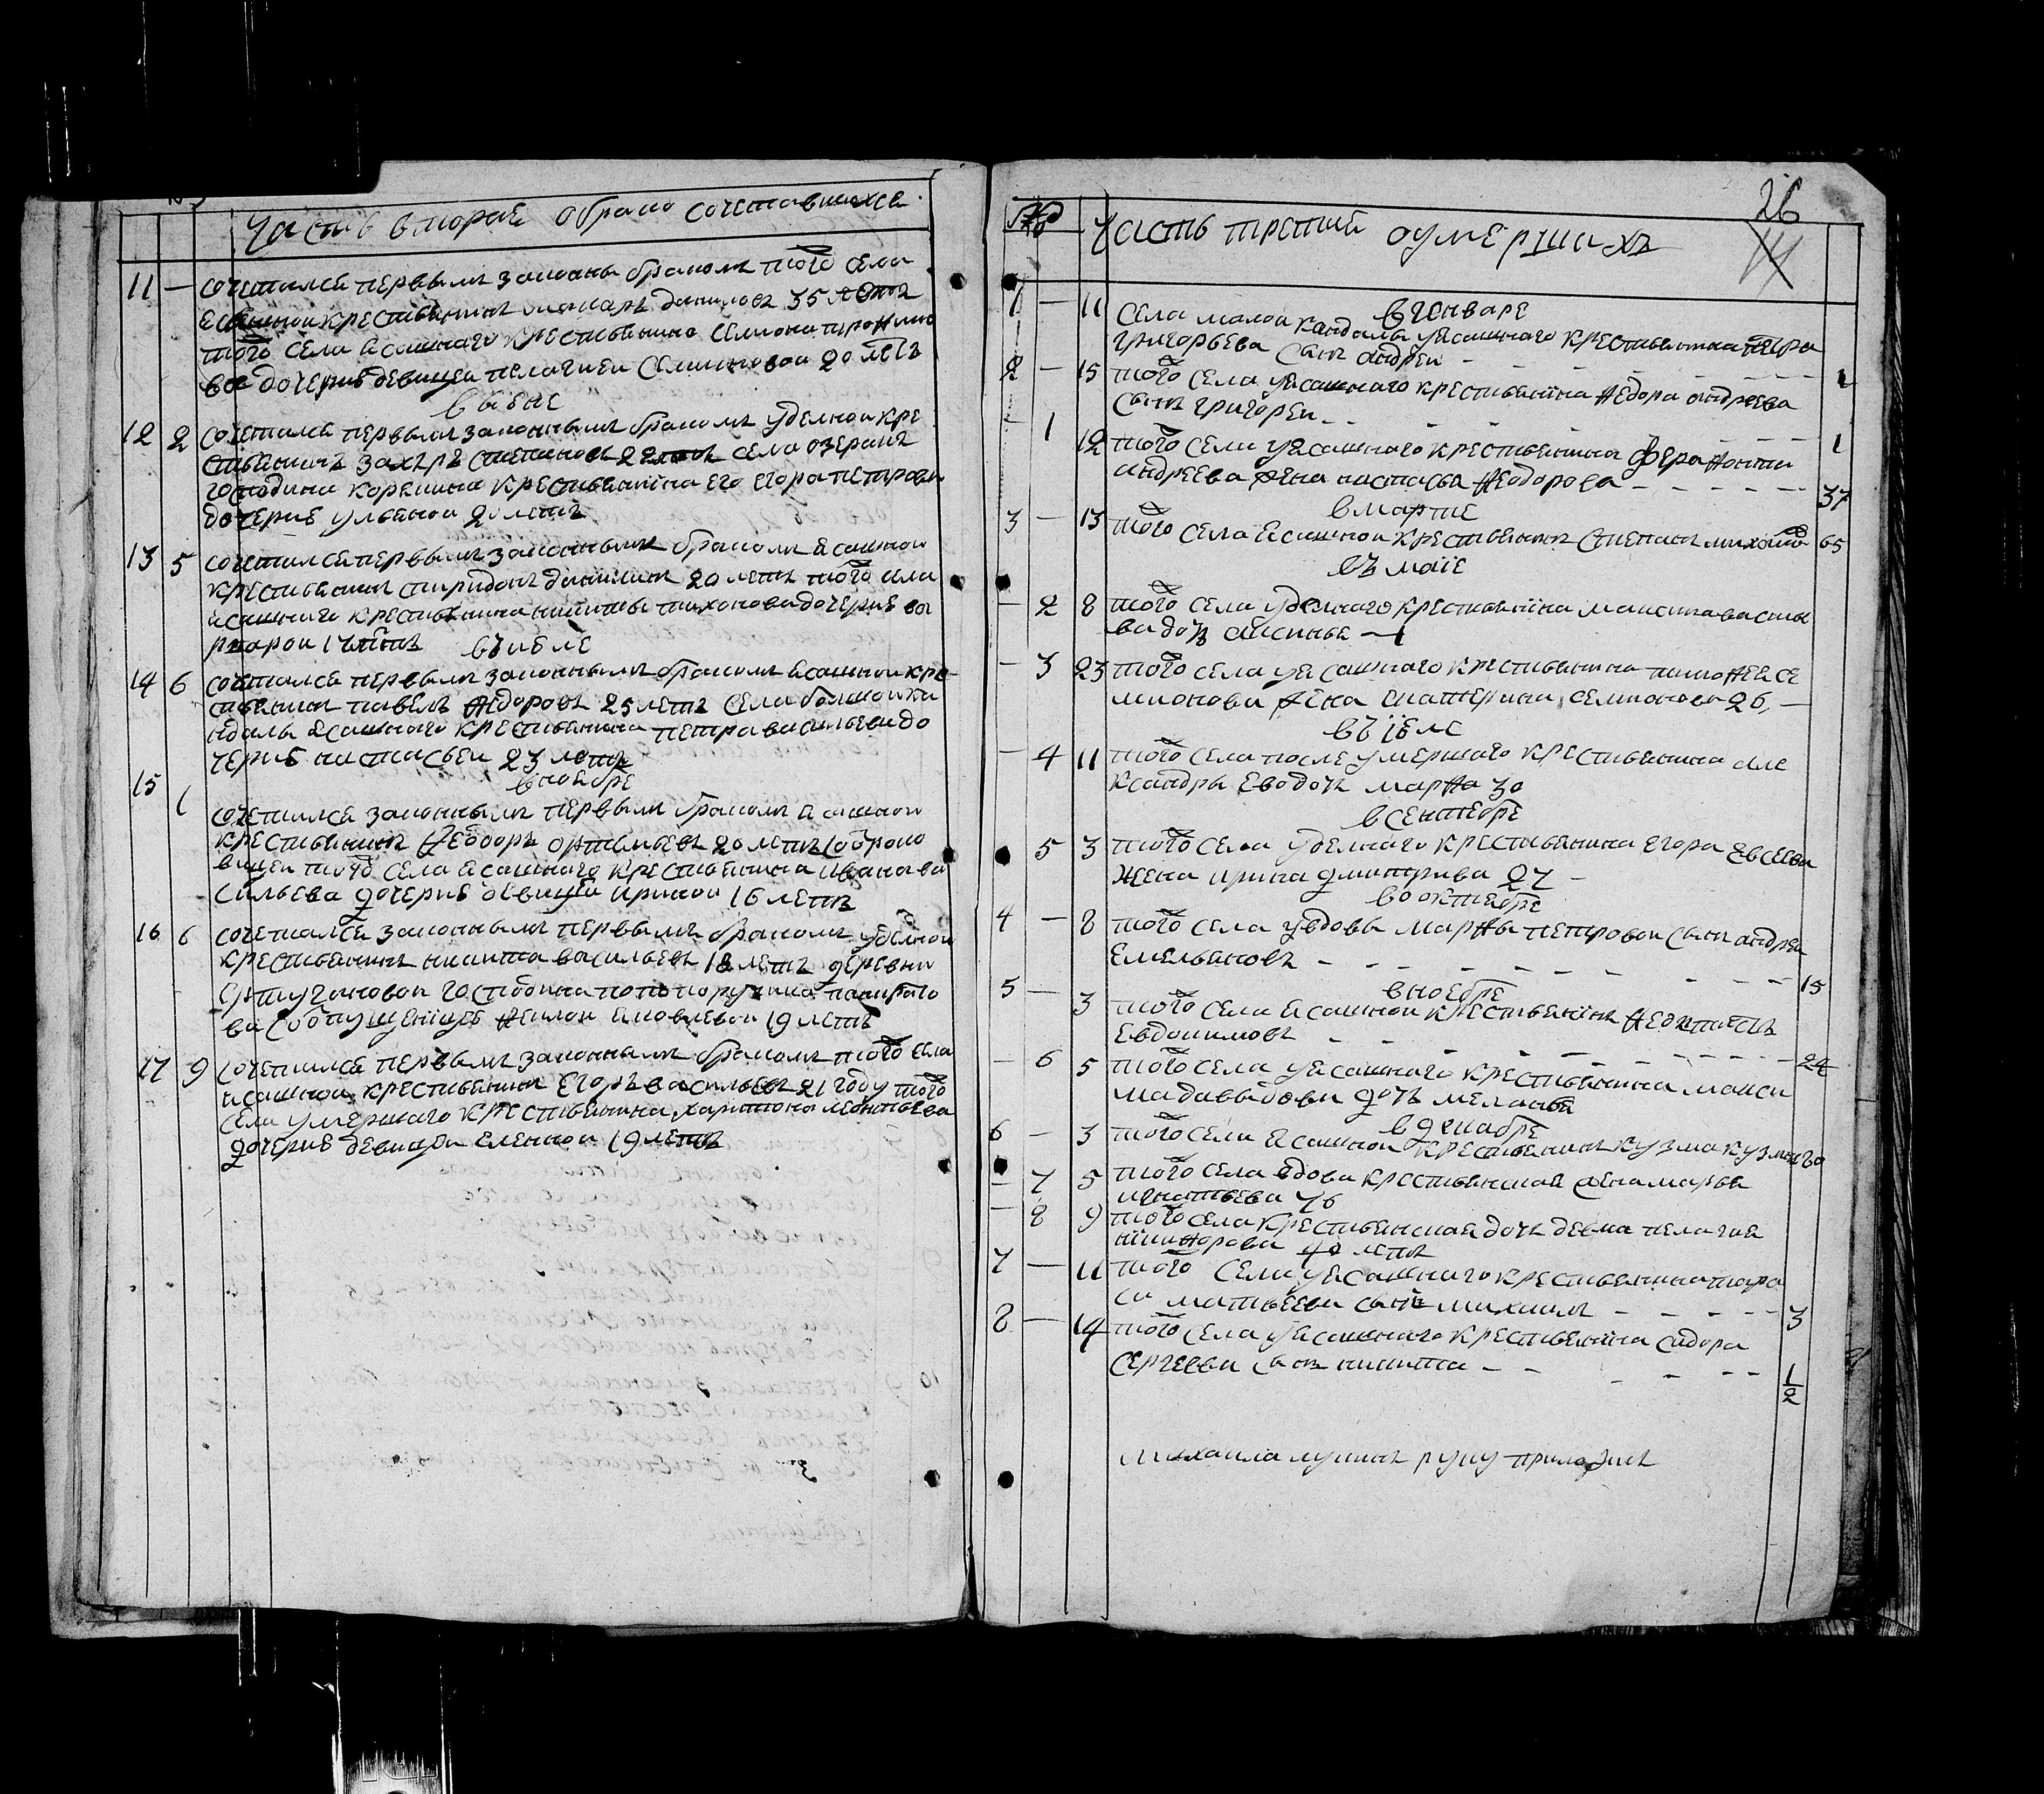 Часть вторая о брако сочетавшихся
11 — сочетался первымъ законны бракомъ того села
ясашной крестьянинъ макаръ даниловъ 35 летъ
того села ясашнаго крестьянина семиона трофимо
ва дочерью девицей пелагией семионовой 20 летъ
в июне
12 2 сочетался первымъ законнымъ бракомъ уделной кре
стьянинъ захаръ степановъ 22 летъ села озеракъ
господина корэмина крестьянина его егора петрова
дочерью ульяной 20 летъ
13 5 сочетался первымъ законнымъ бракомъ ясашной
крестьянинъ спиридонъ данилинъ 20 летъ того села
ясашнаго крестьянина никиты тихонова дочерью ва
рварой 17 летъ въ июле
14 6 сочетался первымъ законнымъ бракомъ ясашной кре
стьянинъ павелъ ѳедоровъ 25 летъ села болшой ка
ндалы ясашнаго крестьянина петра васильева до
черью настасьей 23 летъ
в ноябре
15 1 сочетался законнымъ первымъ бракомъ ясашной
крестьянинъ ѳеодоръ артемьевъ 20 летъ
того села ясашнаго крестьянина ивана ва
сильева дочерью девицей ириной 16 летъ
16 6 сочетался законнымъ первымъ бракомъ уделной
крестьянинъ никита васильевъ 18 летъ деревни
господина порутчика
ва со отпущенницею яковлевой 19 летъ
17 9 сочетался первымъ законнымъ бракомъ того села
ясашной крестьянинъ егоръ васильевъ 21 году того
села умершаго крестьянина харитона леонтьева
дочерью девицей еленной 19 летъ
26
Часть третия о умершихъ
в генваре
1 — 11 села малой кандалы у ясашнаго крестьянина петра
григорьева сынъ андрей — 1
2 — 15 того села у ясашнаго крестьянина ѳедора андреева
сынъ григорей — 1
— 1 12 того села у ясашнаго крестьянина ферапонта
андреева жена настасья ѳеодорова — 37
в марте
3 — 13 того села ясашной крестьянинъ степанъ михайловъ 65
въ маие
— 2 8 того села уделнаго крестьянина максима василь
ва дочь аксинья — 1
— 3 23 того села у ясашнаго крестьянина тимоѳея се
мионова жена катерина семионова 26, —
въ июле
— 4 11 того села после умершаго крестьянина але
ксандры дочь марѳа 30
в сентебре
— 5 3 того села уделнаго крестьянина егора евсева
жена ирина дмитрива 27 —
во октебре
4 — 8 того села у вдовы марѳы петровой сынъ андрей
емельяновъ — 15
в ноебре
5 — 3 того села ясашной крестьянинъ
евдокимовъ — 24
— 6 5 того села у ясашнаго крестьянина макси
ма давыдова дочь меланья
в декабре
6 — 3 того села ясашной крестьянинъ кузма кузминъ
— 7 5 того села вдова крестьянская жена марья
игнатьева 76
— 8 9 того села крестьянская дочь девка пелагия
никиѳорова 40 летъ
7 — 11 того села у ясашнаго крестьянина тара
са матвеева сынъ михаилъ — 3
8 — 14 того села у ясашнаго крестьянина сидора
сергеева сынъ никита — 1/2
михаила лукинъ руку приложилъ